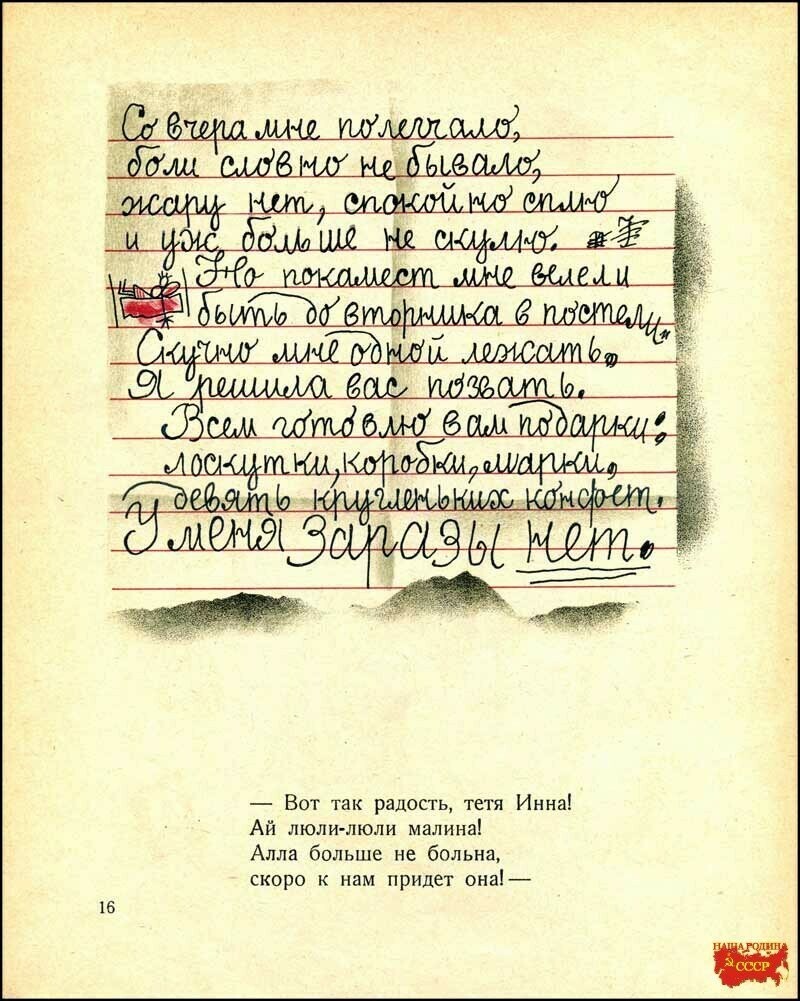 Со вчера мне полегчало,
боли словно не бывало,
жару нет, спокойно сплю
и уж больше не скулю.
Но покамест мне велели
быть до вторника в постели.
Скучно мне одной лежать.
Я решила вас позвать.
Всем готовлю вам подарки:
лоскутки, коробки, марки,
девять кругленьких конфет.
У меня заразы нет.
— Вот так радость, тетя Инна!
Ай люли-люли малина!
Алла больше не больна,
скоро к нам придет она! —
16
НАША РОДИНА
СССР